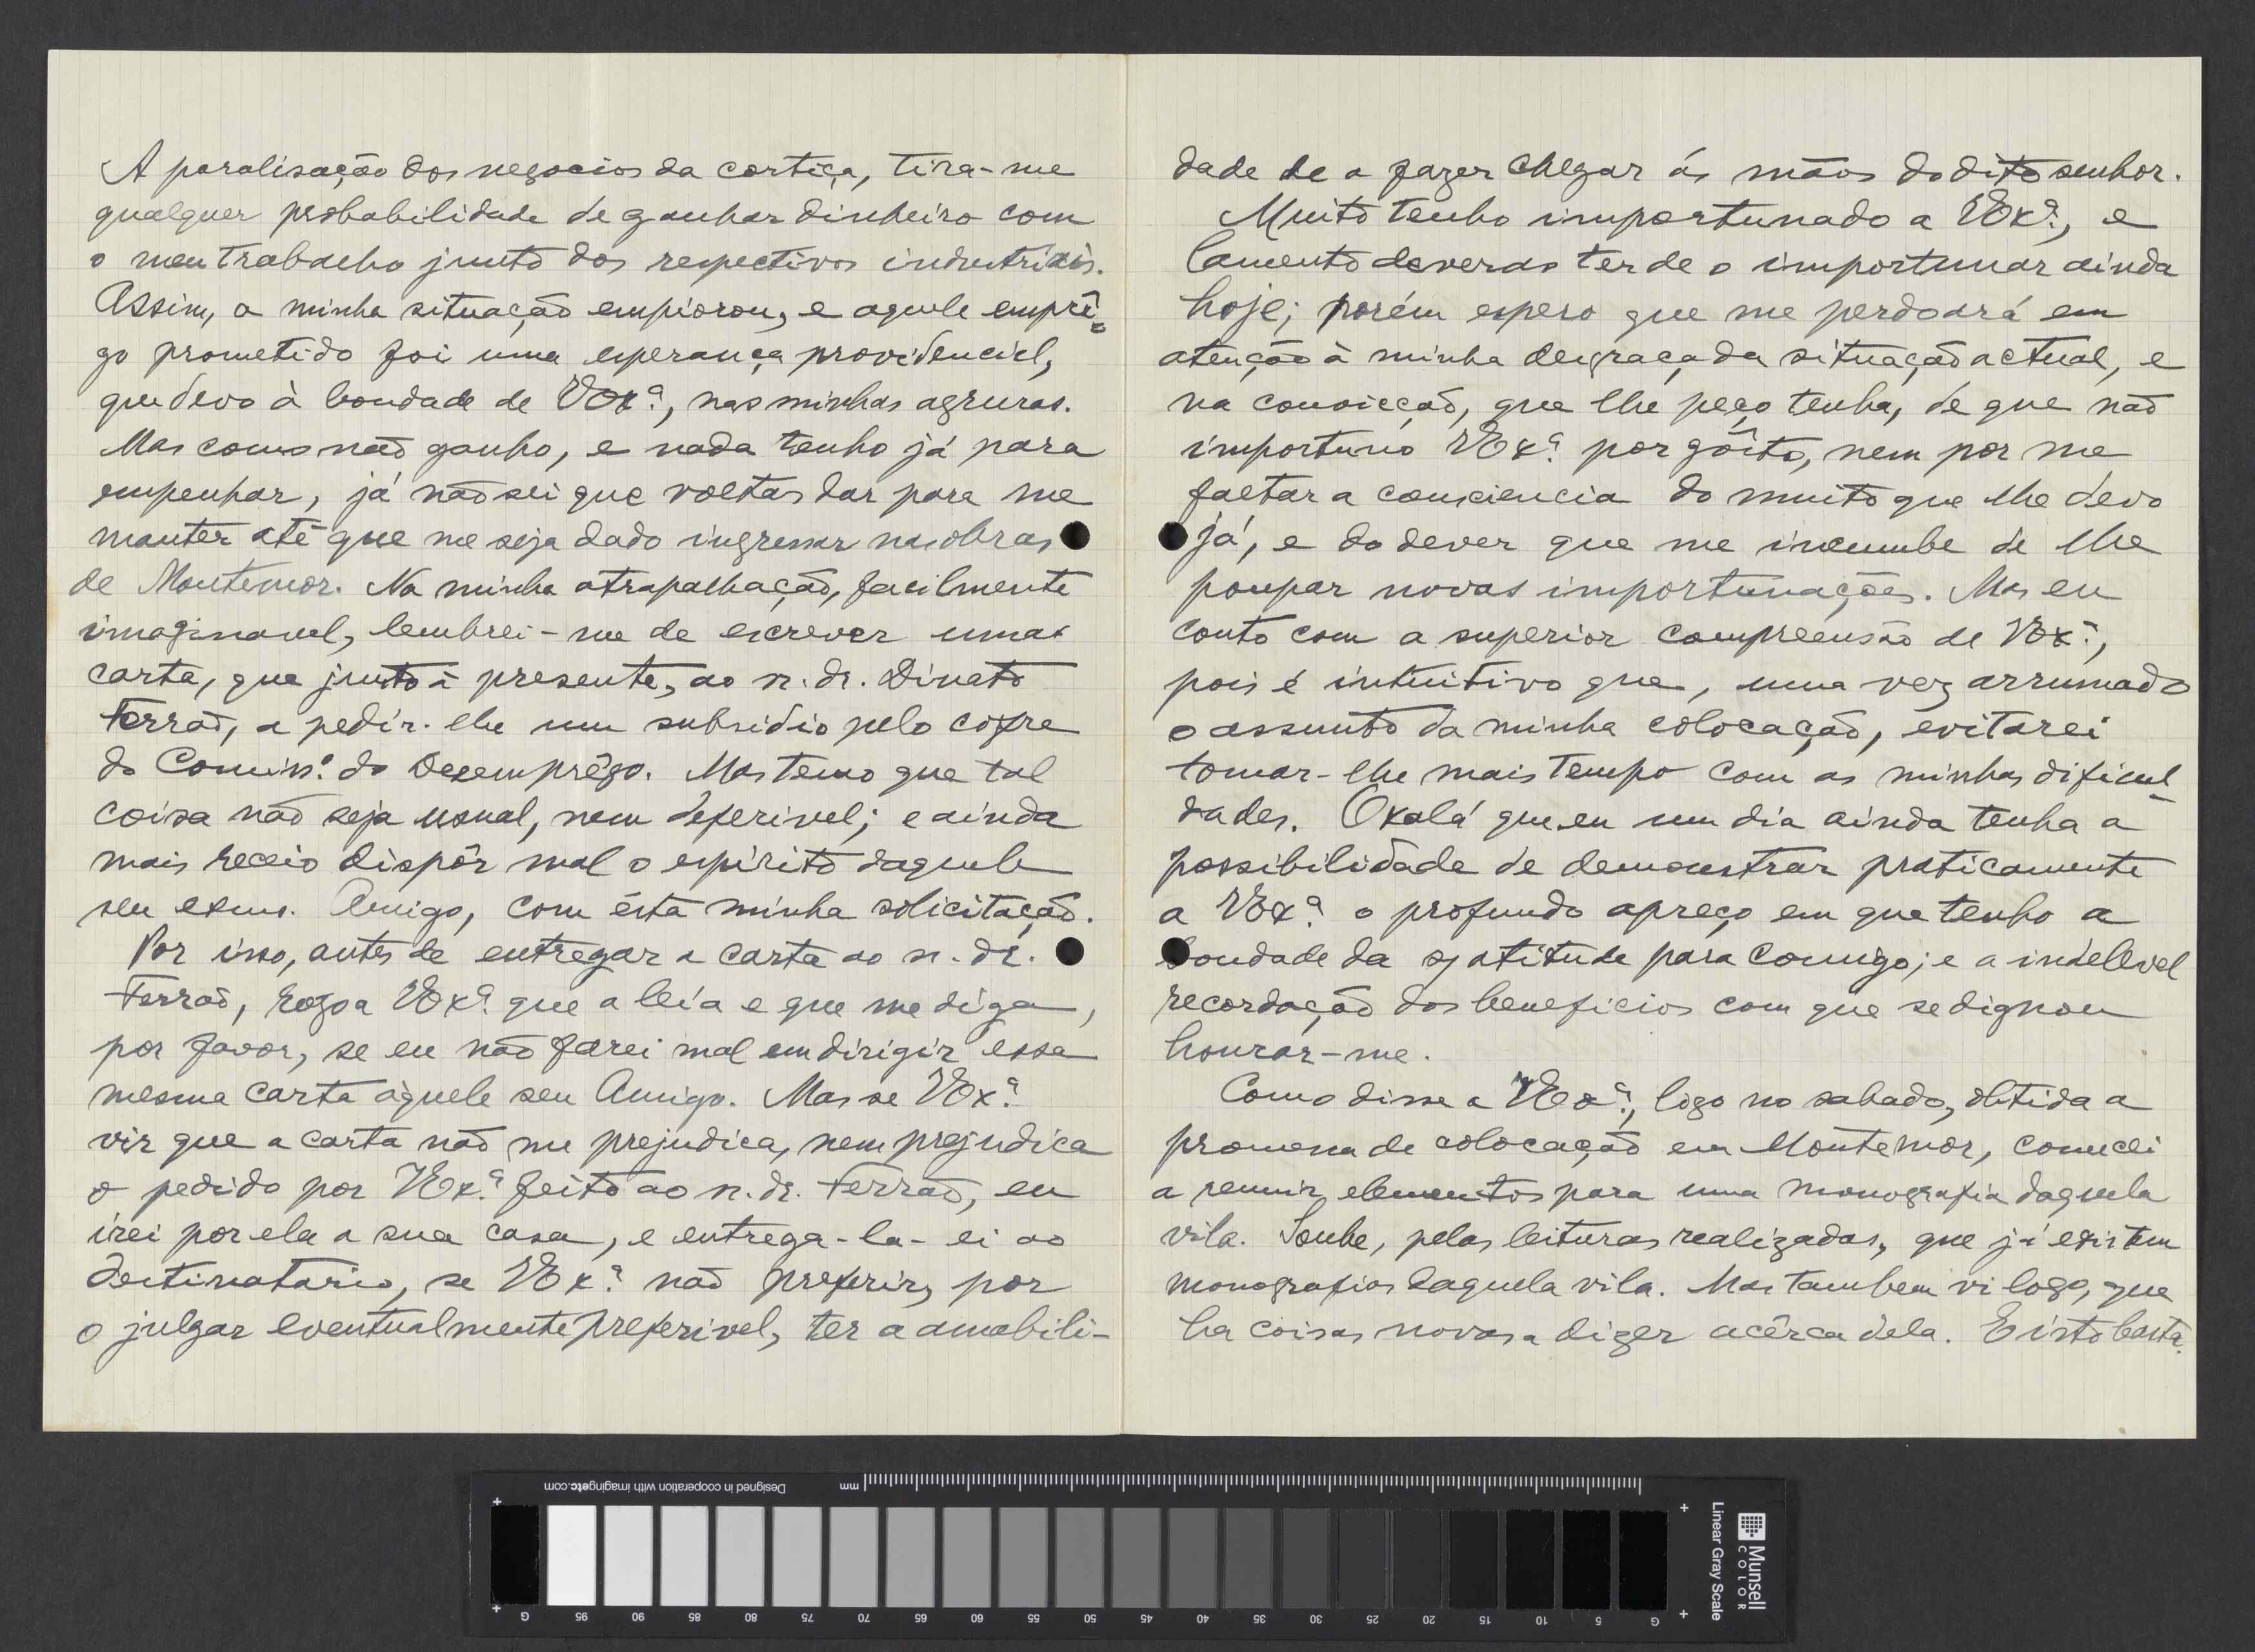 A paralisação dos negocios da cortiça, tira-me
qualquer probabilidade de ganhar dinheiro com
o meu trabalho junto dos respectivos industriais.
Assim, a minha situação empiorou, e aquele emprê-
go prometido foi uma esperança providencial,
que devo à bondade de VExª., nas minhas agruras.
Mas como não ganho, e nada tenho já para
empenhar, já não sei que voltas dar para me
manter até que me seja dado ingressar nas obras
de Montemor. Na minha atrapalhação, facilmente
imaginavel, lembrei-me de escrever uma
carta, que junto à presente, ao sr. dr. Dinato
Ferrão, a pedir-lhe um subsidio pelo cofre
do Comissº. do Desemprêgo. Mas temo que tal
coisa não seja usual, nem deferivel; e ainda
mais receio dispôr mal o espirito daquele
seu exmo. Amigo, com ésta minha solicitação.
Por isso, antes de entregar a carta ao sr. dr.
Ferrão, rogo a VExª. que a leia e que me diga,
por favor, se eu não farei mal em dirigir essa
mesma carta àquele seu Amigo. Mas se VExª.
vir que a carta não me prejudica, nem prejudica
o pedido por VExª. feito ao sr. dr. Ferrão, eu
irei por ela a sua casa, e entrega-la-ei ao
destinatario, se VExª. não preferir, por
o julgar eventualmente preferivel, ter a amabili-
dade de a fazer chegar ás mãos do dito senhor.
Muito tenho importunado a VExª., e
lamento deveras ter de o importunar ainda
hoje; porém espero que me perdoará em
atenção à minha desgraçada situação actual, e
na convicção, que lhe peço tenha, de que não
importuno VExª. por gôsto, nem por me
faltar a consciencia do muito que lhe devo
já, e do dever que me incumbe de lhe
poupar novas importunações. Mas eu
conto com a superior compreensão de VExª.,
pois é intuitivo que, uma vez arrumado
o assunto da minha colocação, evitarei
tomar-lhe mais tempo com as minhas dificul-
dades. Oxalá que eu um dia ainda tenha a
possibilidade de demonstrar praticamente
a VExª. o profundo apreço em que tenho a
bondade da s/ atitude para comigo; e a indelevel
recordação dos beneficios com que se dignou
honrar-me.
Como disse a VExª., logo no sabado, obtida a
promessa de colocação em Montemor, comecei
a reunir elementos para uma monografia daquela
vila. Soube, pelas leituras realizadas, que já existem
monografias daquela vila. Mas tambem vi logo, que
ha coisas novas a dizer acêrca dela. E isto basta.
Designed in cooperation with imagingetc.com
mm
Munsell
COLOR
Linear Gray Scale
G 95 90 85 80 75 70 65 60 55 50 45 40 35 30 25 20 15 10 5 G